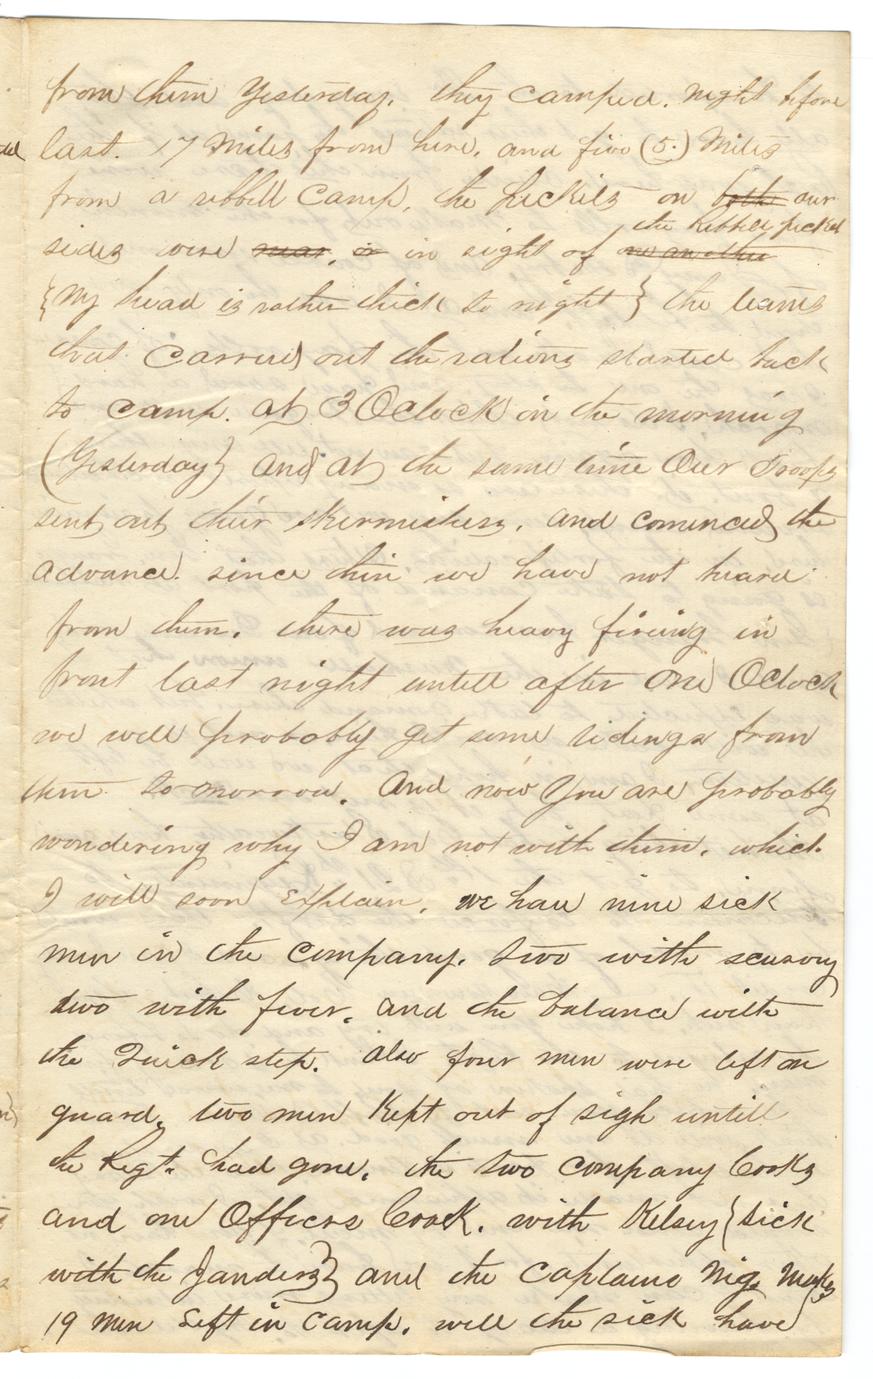 from them Yesterday. they camped. night before
last. 17 Miles from here. and five (5.) Miles
from a rebbell camp, the pickets on both our
the Rebbels picket
sides were near, or in sight of one another
{My head is rather thick to night} the teams
that Carried out the rations started back
to camp. at 3 Oclock in the morning
(Yesterday} and at the same time Our Troops
sent out their skermishers, and comenced the
advance. since then we have not heard
from them. there was heavy fireing in
front last night untill after one Oclock
we will probably get some tidings from
them to-morrow. And now You are probably
wondering why I am not with them. which
I will soon Explain. we have nine sick
men in the company. two with scurvy
two with fever. and the balance with
the Quick step. also four men were left on
guard. two men Kept out of sigh untill
the Regt. had gone. the two company Cooks
and one Officers Cook. with Kelsey {sick
with the Janders} and the captains Nig. Makes
19 men Left in camp. will the sick have